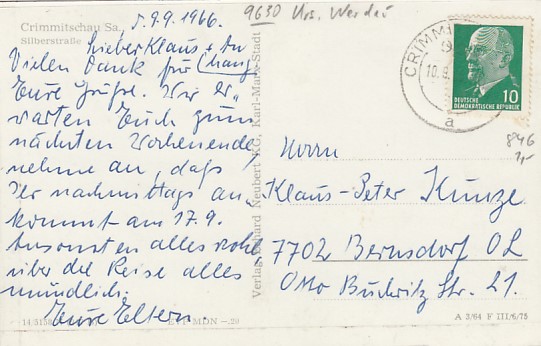 Crimmitschau Sa., d. 9.9.1966.
Silberstraße
9630 Krs. Werdau
Lieber Klaus +
Vielen Dank für
Eure Grüße. Wir er-
warten Euch zum
nächsten Wochenende,
nehme an, daß
Ihr nachmittags an-
kommt am 17.9.
Ansonsten alles wohl
über die Reise alles
mündlich.
Eure Eltern.
Verlag Erhard Neubert K.G. Karl-Marx-Stadt
CRIMMI
10.9.
a
10
DEUTSCHE
DEMOKRATISCHE REPUBLIK
846
1,-
Herrn
Klaus-Peter Kunze
7702 Bernsdorf OL
Otto Buchwitz Str. 21.
EVP MDN -.20
A 3/64 F III/6/75